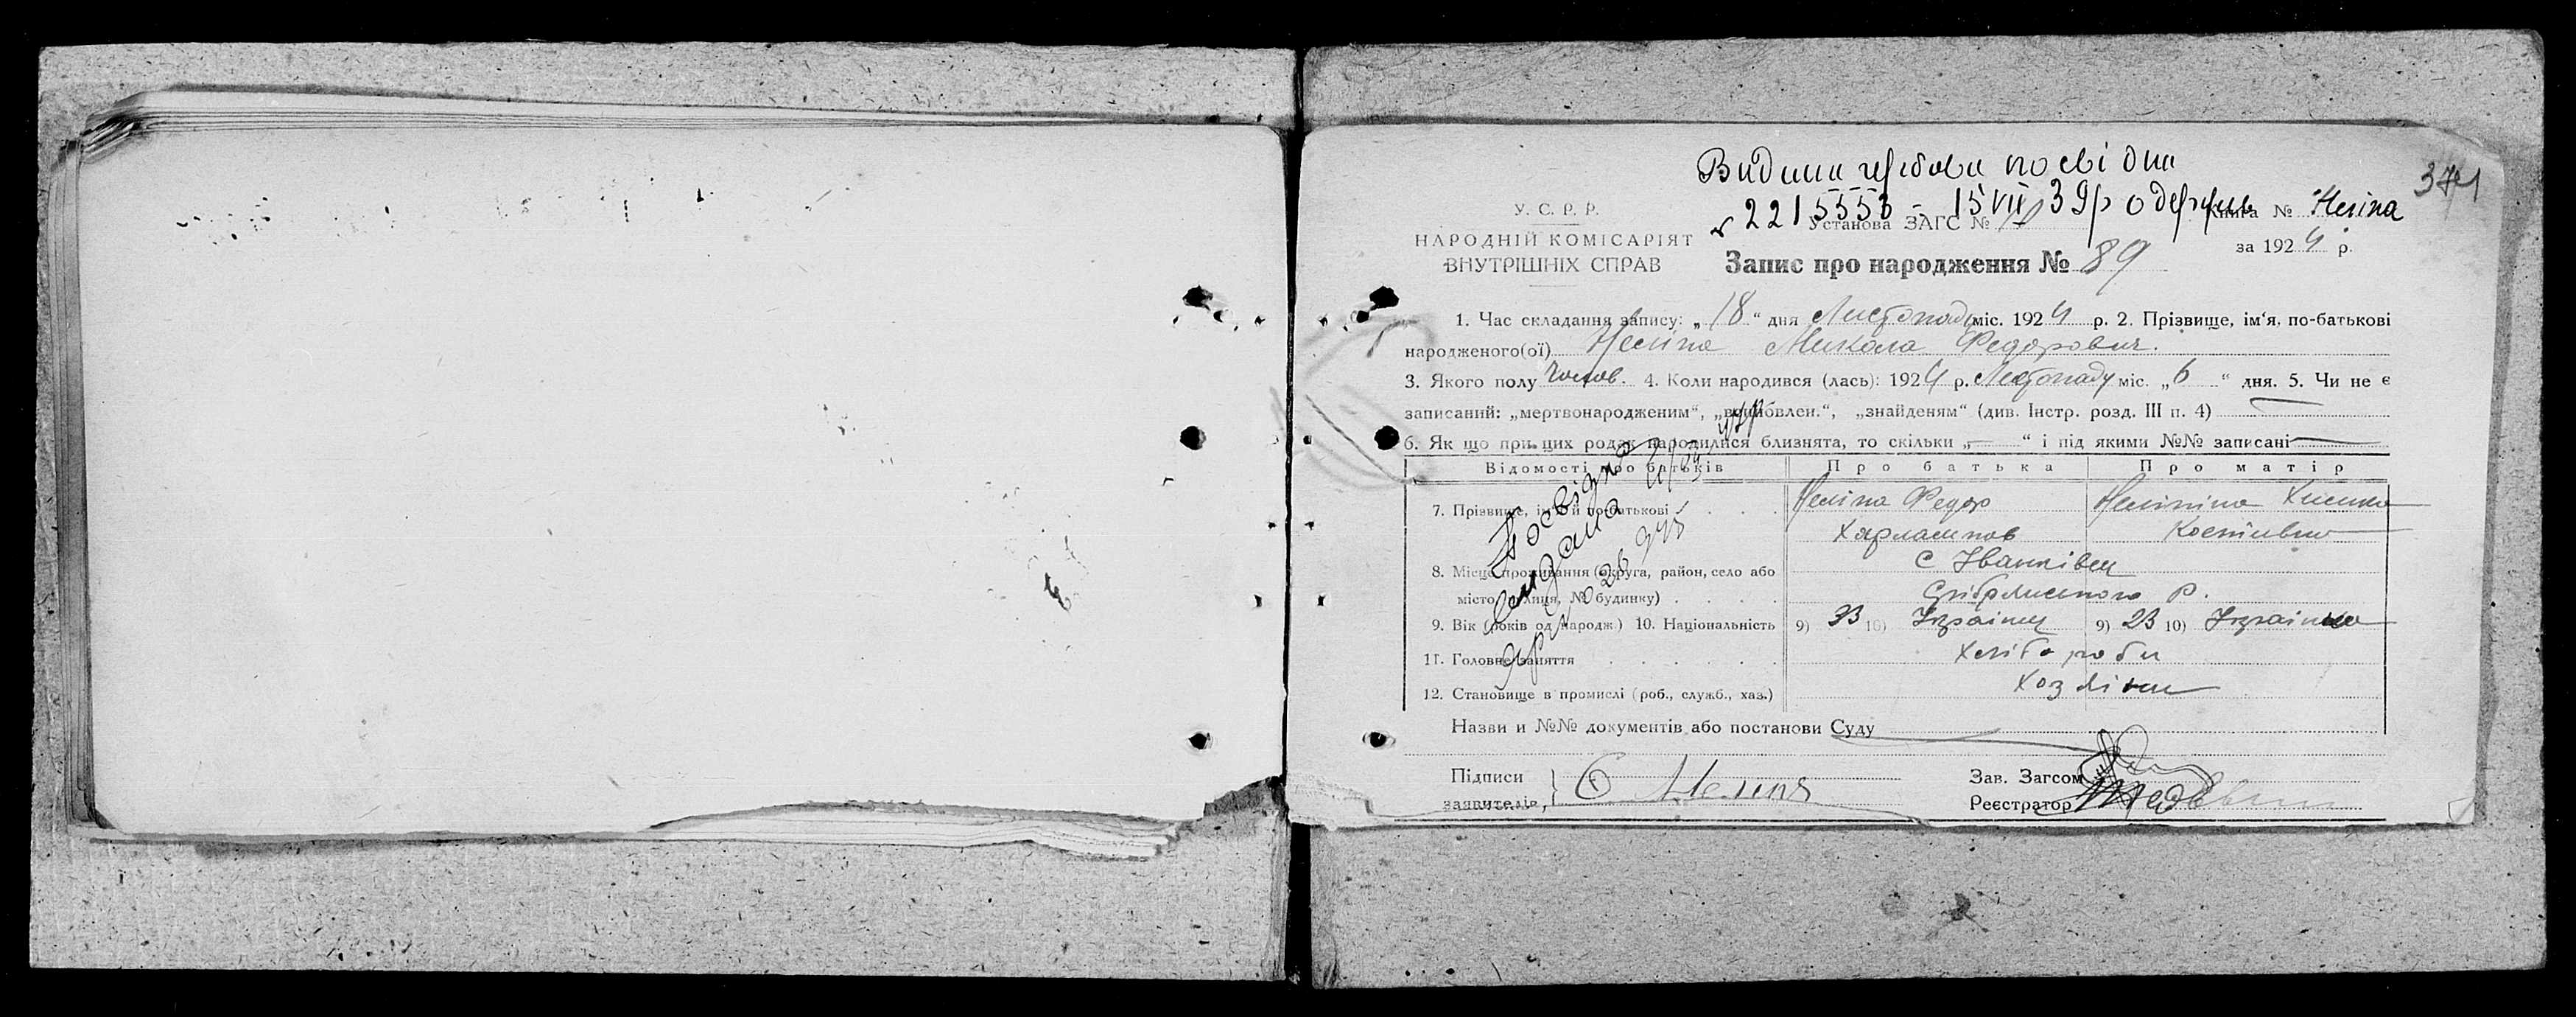 Видана гербова посвідка
374
№ 2215553 - 15 VII 39р одержав Неліпа
У. С. Р. Р.
Установа ЗАГС № Книга №
НАРОДНІЙ КОМІСАРІЯТ
ВНУТРІШНІХ СПРАВ
за 1924 р.
Запис про народження № 89
1. Час складання запису: „18“ дня Листопаду міс. 1924 р. 2. Прізвище, ім‘я, по-батькові
народженого(ої) Неліпа Микола Федорович.
3. Якого полу чолов. 4. Коли народився (лась): 1924 р. Листопаду міс. „6“ дня. 5. Чи не є
записаний: „мертвонародженим“, „вшибовлен.“, „знайденям“ (див. Інстр. розд. III п. 4) —
6. Як що при цих родах народилися близнята, то скільки „—“ і під якими №№ записані —
Відомості про батьків Про батька Про матір
7. Прізвище, ім‘я й по-батькові . . . Неліпа Федор Харлампов Неліпина Костівна
8. Місце проживання (округа, район, село або
місто, вулиця, № будинку) . . . . с Іванківці
Срібрянського Р.
9. Вік (років од народж.) 10. Національність 9) 33 10) Українц 9) 23 10) Українка
11. Головне заняття . . . . . . Хліборобы
12. Становище в промислі (роб., служб., хаз.) Хозяїни
Посвідка
видана
Назви и №№ документів або постанови Суду
Підписи
заявителів, Ф Нелипа
Зав. Загсом
Реєстратор